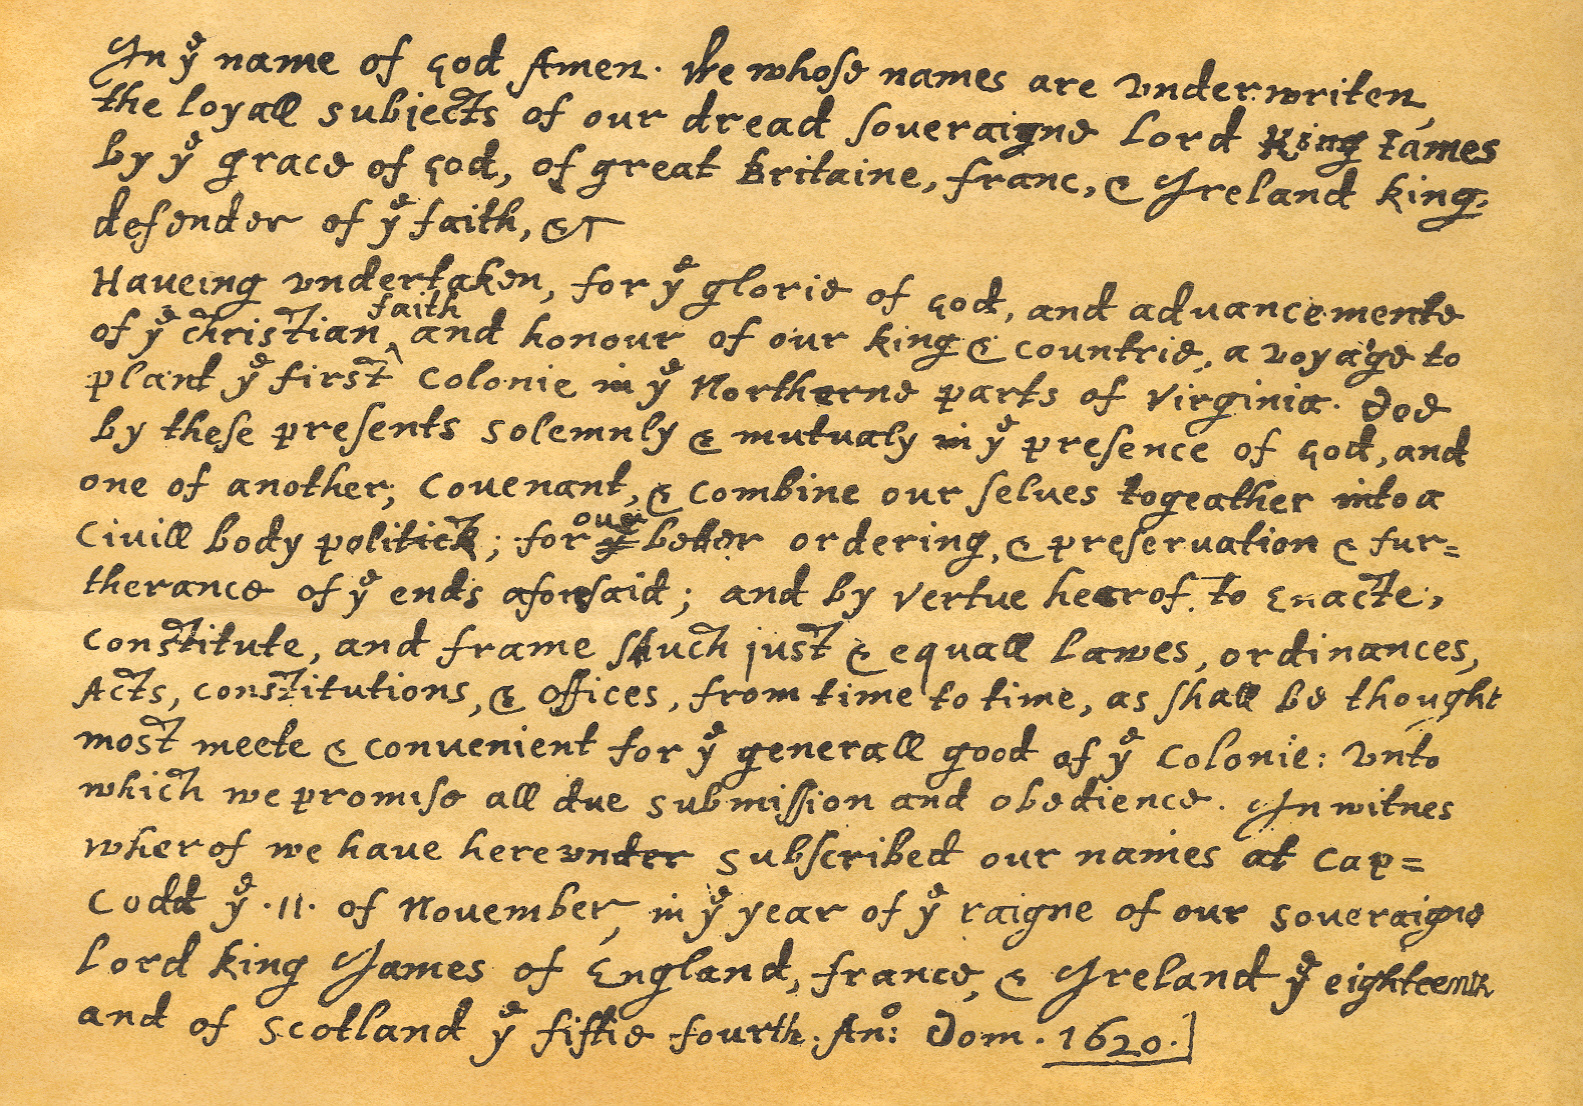 In yᵉ name of god Amen. We whose names are vnderwriten,
the loyall subjects of our dread soueraigne Lord King Iames
by yᵉ grace of god, of great Britaine, franc, & Ireland king,
defender of yᵉ faith, &c
Haueing vndertaken, for yᵉ glorie of god, and aduancemente
of yᵉ christian ^faith and honour of our king & countrie, a voyage to
plant yᵉ first colonie in yᵉ Northerne parts of Virginia. doe
by these presents solemnly & mutualy in yᵉ presence of god, and
one of another; couenant, & combine our selues togeather into a
Ciuill body politick; for ^our yᵉ better ordering, & preseruation & fur=
therance of yᵉ ends aforesaid; and by vertue hearof to enacte,
constitute, and frame shuch just & equall Lawes, ordinances,
Acts, constitutions, & offices, from time to time, as shall be thought
most meete & conuenient for yᵉ generall good of yᵉ colonie: vnto
which we promise all due submission and obedience. In witnes
wherof we have hereunder subscribed our names at Cap=
Codd yᵉ .11. of Nouember, in yᵉ year of yᵉ raigne of our soueraigne
Lord king James of England, france, & Ireland yᵉ eighteenth
and of Scotland yᵉ fiftie fourth. Anᵒ: Dom. 1620.]